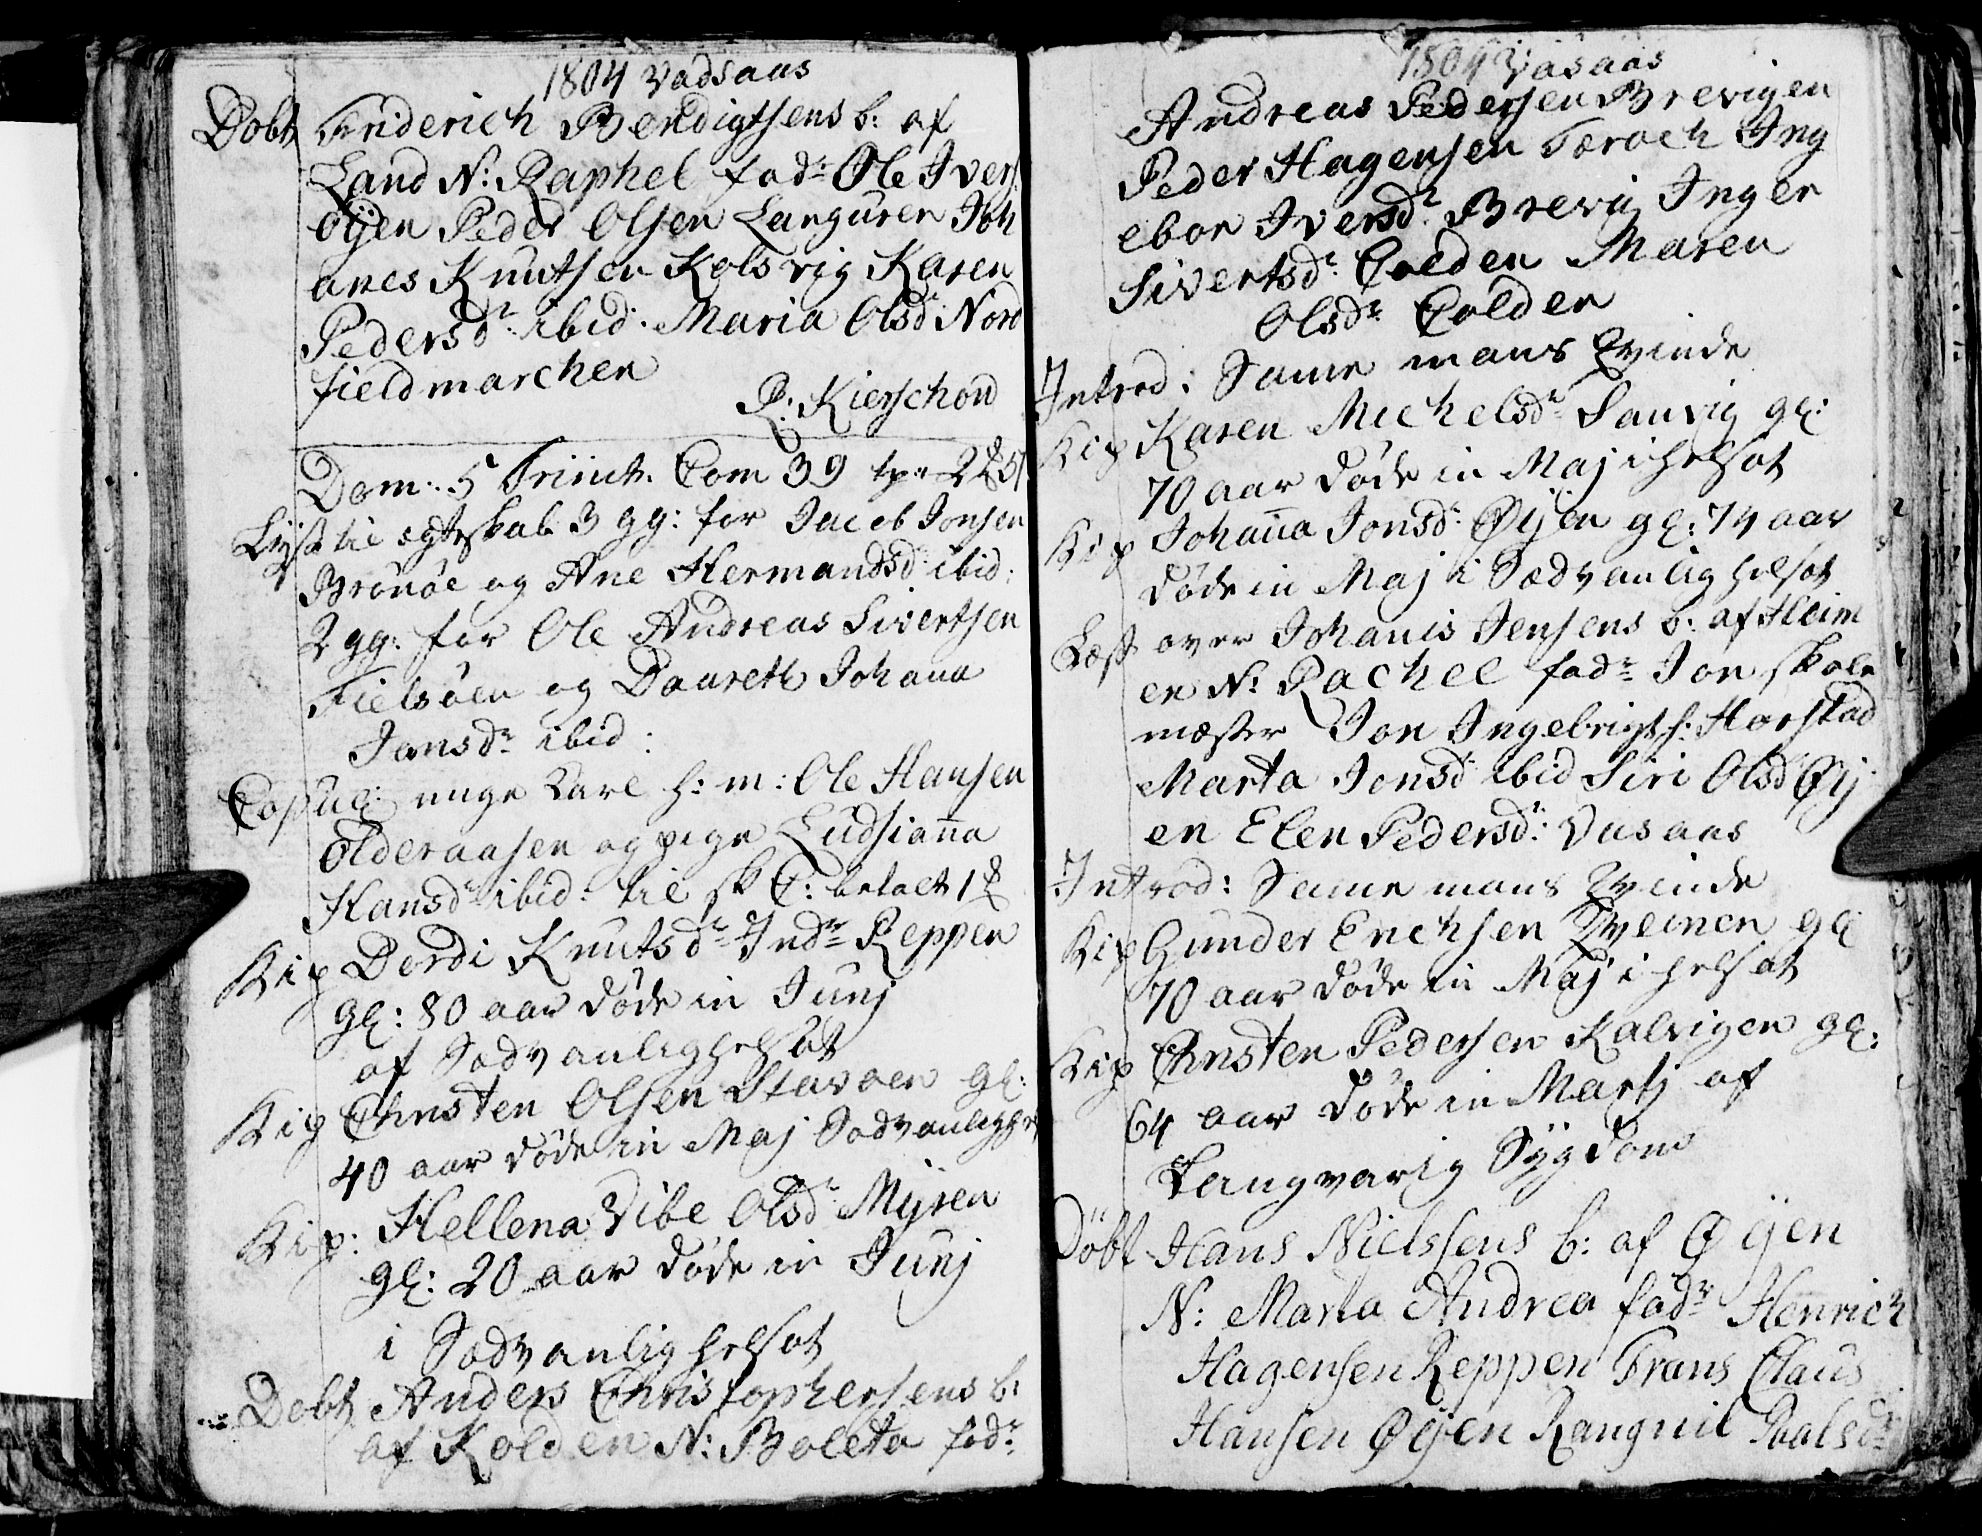 1804 Vadsaas
Døbt Friderich Bendigtsens b: af
Land N: Raphel fad:r Ole Ivers
Øijen Peder Olsen Languren Joh
anes Knutsen Kolsvig Karen
Pedersd:r ibid. Maria Olsd: Nord
fieldmarchen
P: Kierschow
Dom: 5 Trinit. Com 39
Lyst til egteskab 3 gg: for Jacob Jonsen
Brønøe og Ane Hermandsd: ibid:
2 gg: for Ole Andreas Sivertsen
Fielsøen og Daareth Johana
Jansd:r ibid:
Copul: unge Karl h: m: Ole Hansen
Olderaasen og pige Ludsiaña
Hansd:r ibid: til sk C: betalt 1
Kip Dordi Knutsd:r Ind:r Reppen
gl: 80 aar døde in Junj
af Sædvanlig helsot
Kip Christen Olsen Stavøen gl:
40 aar døde in Maj Sædvanlig hels
Kip: Hellena Vibe Olsd:r Mÿren
gl: 20 aar døde in Junj
i Sædvanlig helsot
Døbt Anders Christophersens b:
af Kolden N: Boleta fad:r
1804 Vasaas
Andreas Pedersen Brevigen
Peder Hagensen Tøroch Ing
ebor Iversd:r Brevig Inger
Sivertsd:r Colden Maren
Olsd:r Colden
Introd: Same mans Qvinde
Kip Karen Michelsd:r Sanvig gl:
70 aar døde in Maj i helsot
Kip Johaña Jonsd: Øijen gl: 74 aar
døde in Maj i Sædvanlig helsot
Læst over Johanis Jensens b: af Heim
en N: Rachel fad:r Jon skole
mæster Jon Ingebrigts: Horstad
Marta Jonsd: ibid Siri Olsd: Øij
en Elen Pedersd:r Vasaas
Introd: Same mans Qvinde
Kip Gunder Erichsen Qveinen gl:
70 aar døde in Maj i helsot
Kip Christen Pedersen Kalvigen gl:
64 aar døde in Martj af
Langvarig Sÿgdom
Döbt Hans Nielssens b: af Øijen
N: Marta Andrea fad:r Henrich
Hagensen Reppen Frans Claus
Hansen Øijen Rangnil Paalsd:r